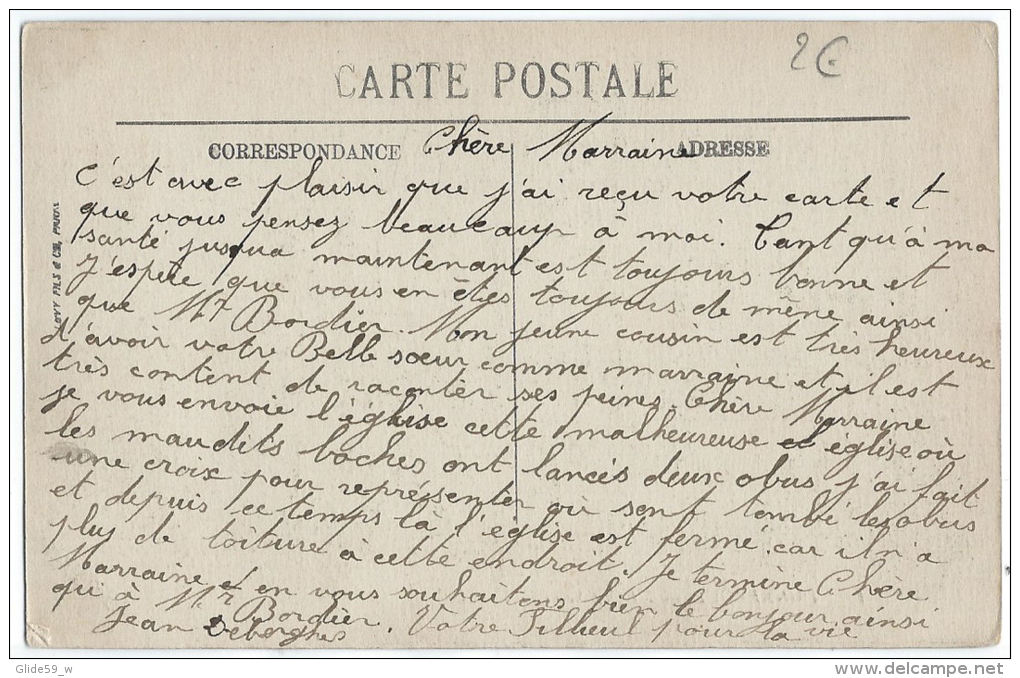 2€
CARTE POSTALE
CORRESPONDANCE
ADRESSE
Chère Marraine
C'est avec plaisir que j'ai reçu votre carte et
que vous pensez beaucoup à moi. Tant qu'à ma
santé jusqua maintenant est toujours bonne et
J'espère que vous en êtes toujours de même ainsi
que Mr Bordier. Mon jeune cousin est très heureux
d'avoir votre Belle soeur comme marraine et il est
très content de raconter ses peines. Chère Marraine
je vous envoie l'église cette malheureuse église où
les maudits boches ont lancés deux obus j'ai fait
une croix pour représenter où sont tombé les obus
et depuis ce temps là l'église est fermé. car il n'a
plus de toiture à cette endroit. Je termine Chère
Marraine et en vous souhaitons bien le bonjour ainsi
qui à Mr Bordier. Votre Filleul pour la vie
Jean Deberghes
LEVY FILS & Cie, PARIS
Glide59_w
delcampe.net